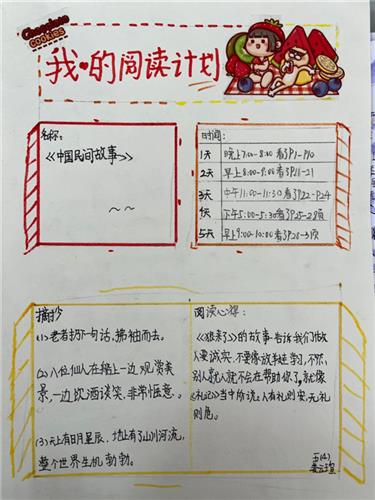 Chocolate
Cookies
我的阅读计划
名称:
《中国民间故事》
时间:
1天 晚上7:00-8:00 看3P1-P10
2天 早上8:00-9:00看3P11-21
3天 中午11:00-11:30看3P22-P24
4天 下午5:00-5:30看3P25-28页
5天 早上9:00-10:00看3P28-3页
摘抄
(1)老者扔下一句话,拂袖而去。
(2)八位仙人在船上一边观赏美
景,一边饮酒谈笑,非常惬意。
(3)天上有日月星辰,地上有了山川河流,
整个世界生机勃勃。
阅读心得:
《狼来了》的故事告诉我们做
人要诚实,不要像放羊娃学习,不然
别人就人就不会在帮助你了,就像
《礼记》当中所说,人有礼则安,无礼
则危。
五(4)